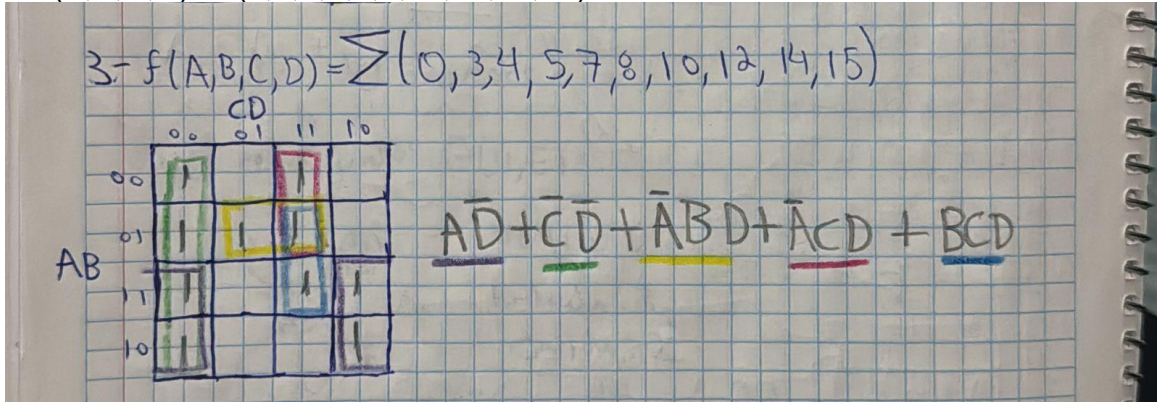 3.- f(A,B,C,D) = Σ(0, 3,4, 5,7,8,10,12,14,15)
CD
00 01 11 10
00 1 1
01 1 1 1
AB
11 1 1 1
10 1 1
AD̅ + C̅D̅ + A̅BD + A̅CD + BCD